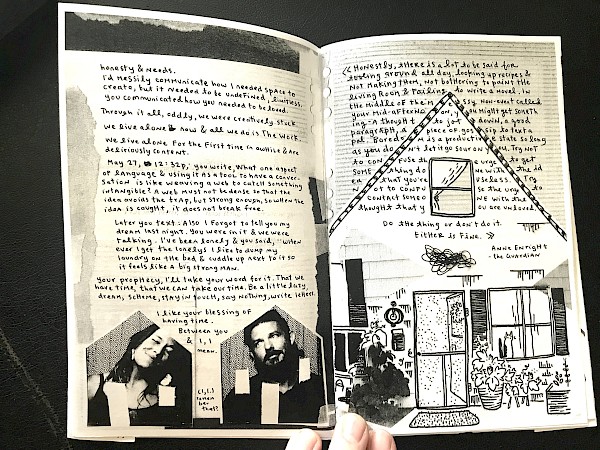 honesty & needs.
I'd messily communicate how I needed space to
create, but it needed to be undefined, limitless.
you communicated how you needed to be loved.
Through it all, oddly, we were creatively stuck.
we live alone now & all we do is The work.
we live alone for the first time in awhile & are
deliciously content.
May 27, 12:32p, you write, What one aspect
of language & using it as a tool to have a conver-
sation is like weaving a web to catch something
intangible? A web must not be dense so that the
idea avoids the trap, but strong enough, so when the
idea is caught, it does not break free.
Later you text: Also I forgot to tell you my
dream last night. You were in it & we were
talking. I've been lonely & you said, "When
ever I get the lonelys I like to dump my
laundry on the bed & cuddle up next to it so
it feels like a big strong man.
Your prophecy, I'll take your word for it. That we
have time, that we can take our time. Be a little lazy,
dream, scheme, stay in touch, say nothing, write letters.
I like your blessing of
having time.
Between you
& I, I
mean.
(I, I,)
remem
ber
that?
"Honestly, there is a lot to be said for
tooling around all day, looking up recipes &
not making them, not bothering to paint the
living room & failing to write a novel. In
the middle of the messy non-event called
your mid-afternoon, you might get someth
ing - a thought to jot down, a good
paragraph, a piece of gossip to text a
pal. Boredom is a productive state so long
as you don't let it go sour on you. Try not
to confuse the urge to get
something done with the id
ea that you're useless. Try
not to confuse the urge to
contact someone with the
thought that you are unloved.
Do the thing or don't do it.
Either is fine."
Anne Enright
- the Guardian